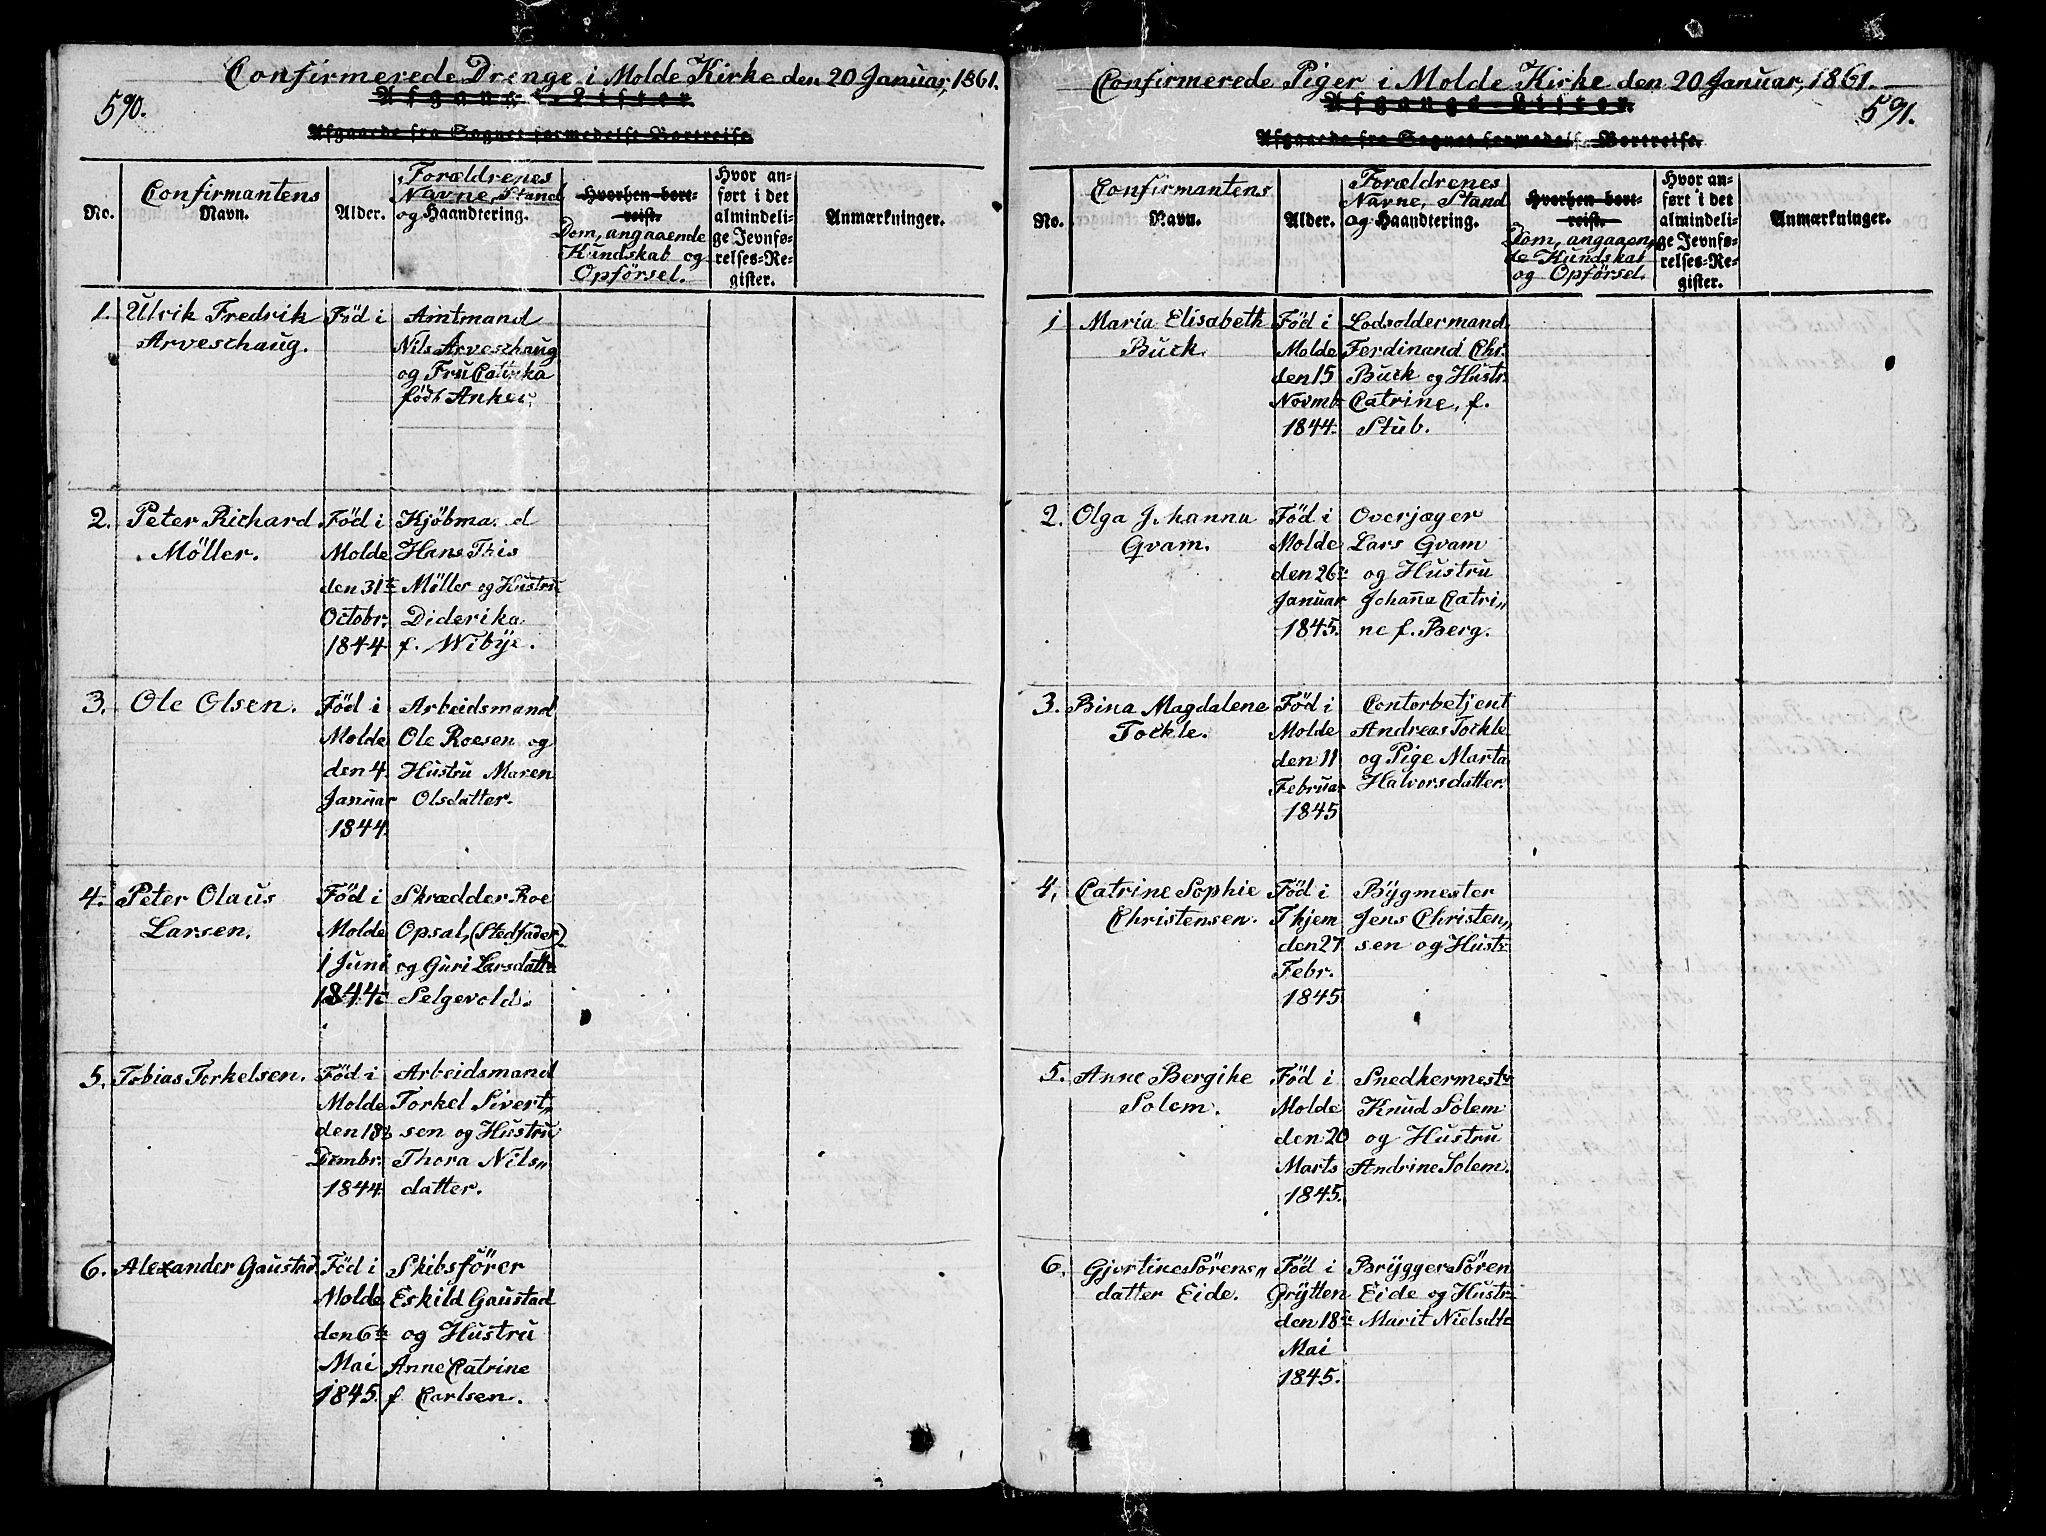 590.
Confirmerede Drenge i Molde Kirke den 20 Januar, 1861.
Afgangs-Lister
Afgaaede fra Sognet formedelst Bortreise.
No.
Confirmantens
Navn.
Alder.
Forældrenes
Navne, Stand
og Haandtering.
Hvorhen bort-
reist.
Dom, angaaende
Kundskab og
Opförsel.
Hvor an-
ført i det
almindeli-
ge Jevnfø-
relses-Re-
gister.
Anmærkninger.
1. Ulrik Fredrik
Arveschaug.
Föd i
Amtmand
Nils Arveschaug
og Fru Catinka
födt Anker.
2. Peter Richard
Möller.
Föd i
Molde
den 31te
Octobr.
1844
Kjöbmand
Hans This
Möller og Hustru
Diderika
f. Wibye.
3. Ole Olsen.
Föd i
Molde
den 4
Januar
1844.
Arbeidsmand
Ole Roesen og
Hustru Maren
Olsdatter.
4. Peter Olaus
Larsen.
Föd i
Molde
1 Juni
1844
Skrædder Roe
Opsal, (Stedfader)
og Guri Larsdattr
Selgevold.
5. Tobias Torkelsen.
Föd i
Molde
den 18
Dcmbr.
1844
Arbeidsmand
Torkel Sivert„
sen og Hustru
Thora Nils„
datter.
6. Alexander Gaustad.
Föd i
Molde
den 6te
Mai
1845.
Skibsförer
Eskild Gaustad
og Hustru
Anne Catrine
f Carlsen.
Confirmerede Piger i Molde Kirke den 20 Januar, 1861.
591.
Afgangs-Lister
Afgaaede fra Sognet formedelst Bortreise.
No.
Confirmantens
Navn.
Alder.
Forældrenes
Navne, Stand
og Haandtering.
Hvorhen bort-
reist.
Dom, angaaen„
de Kundskab
og Opförsel.
Hvor an-
ført i det
almindeli-
ge Jevnfø-
relses-Re-
gister.
Anmærkninger.
1 Maria Elisabeth
Buck
Föd i
Molde
den 15
Novmb.
1844.
Lodsoldermand
Ferdinand Chr.
Buck og Hustr.
Catrine, f.
Stub.
2. Olga Johanna
Qvam.
Föd i
Molde
den 26te
Januar
1845.
Overjæger
Lars Qvam
og Hustru
Johanna Catri„
ne f. Berg.
3. Bina Magdalene
Tockle.
Föd i
Molde
den 11
Februar
1845
Contorbetjent
Andreas Tockle
og Pige Marta
Halvorsdatter.
4, Catrine Sophie
Christensen.
Föd i
Thjem
den 27
Febr.
1845
Bygmester
Jens Christen„
sen og Hustr.
5. Anne Bergike
Solem.
Föd i
Molde
den 20
Marts
1845.
Snedkermestr
Knud Solem
og Hustru
Andrine Solem.
6. Gjertine Sörens„
datter Eide.
Föd i
Grytten
den 18te
Mai
1845.
Brygger Sören
Eide og Hustr.
Marit Nielsdtr